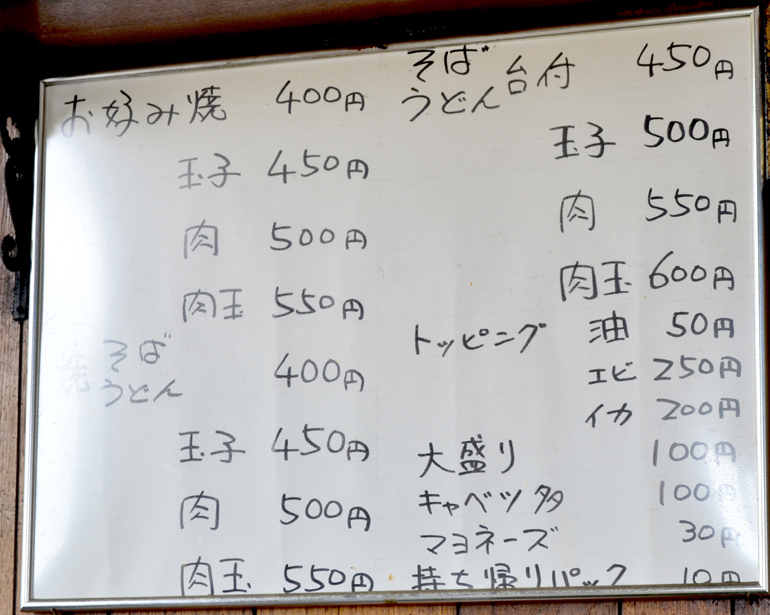 お好み焼 400円
玉子 450円
肉 500円
肉玉 550円
焼 そば うどん 400円
玉子 450円
肉 500円
肉玉 550円
そば うどん 台付 450円
玉子 500円
肉 550円
肉玉 600円
トッピング 油 50円
エビ 250円
イカ 200円
大盛り 100円
キャベツ多 100円
マヨネーズ 30円
持ち帰りパック 10円